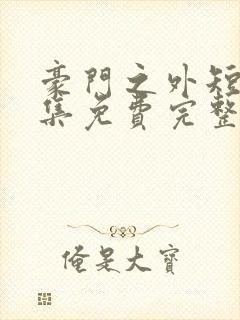 豪門之外短
集免費完整
俺是大寶